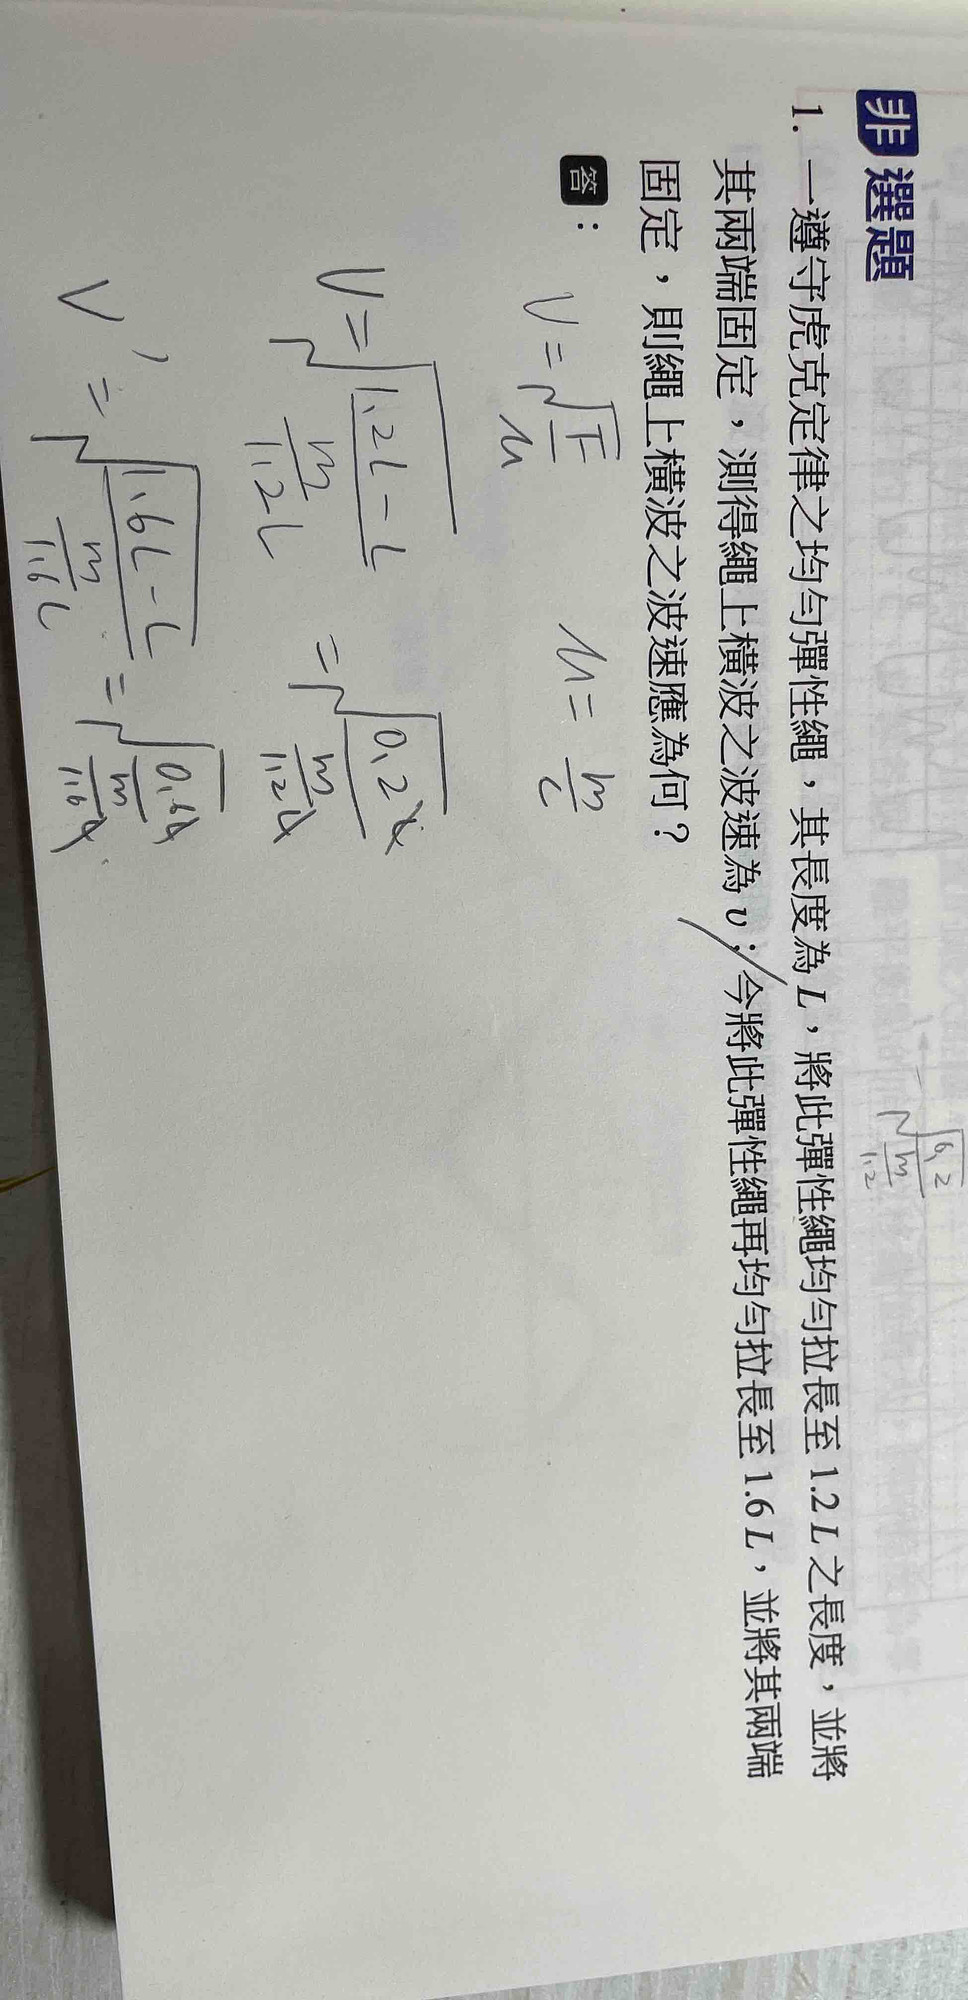 非選題
1. 一遵守虎克定律之均勻彈性繩，其長度為 L，將此彈性繩均勻拉長至 1.2 L 之長度，並將
其兩端固定，測得繩上橫波之波速為 υ；今將此彈性繩再均勻拉長至 1.6 L，並將其兩端
固定，則繩上橫波之波速應為何？
答：
V = √(F/μ)  μ = m/L
V = √((1.2L-L)/(m/1.2L)) = √(0.2L/(m/1.2L))
V' = √((1.6L-L)/(m/1.6L)) = √(0.6L/(m/1.6L))
√(0.2/(m/1.2))